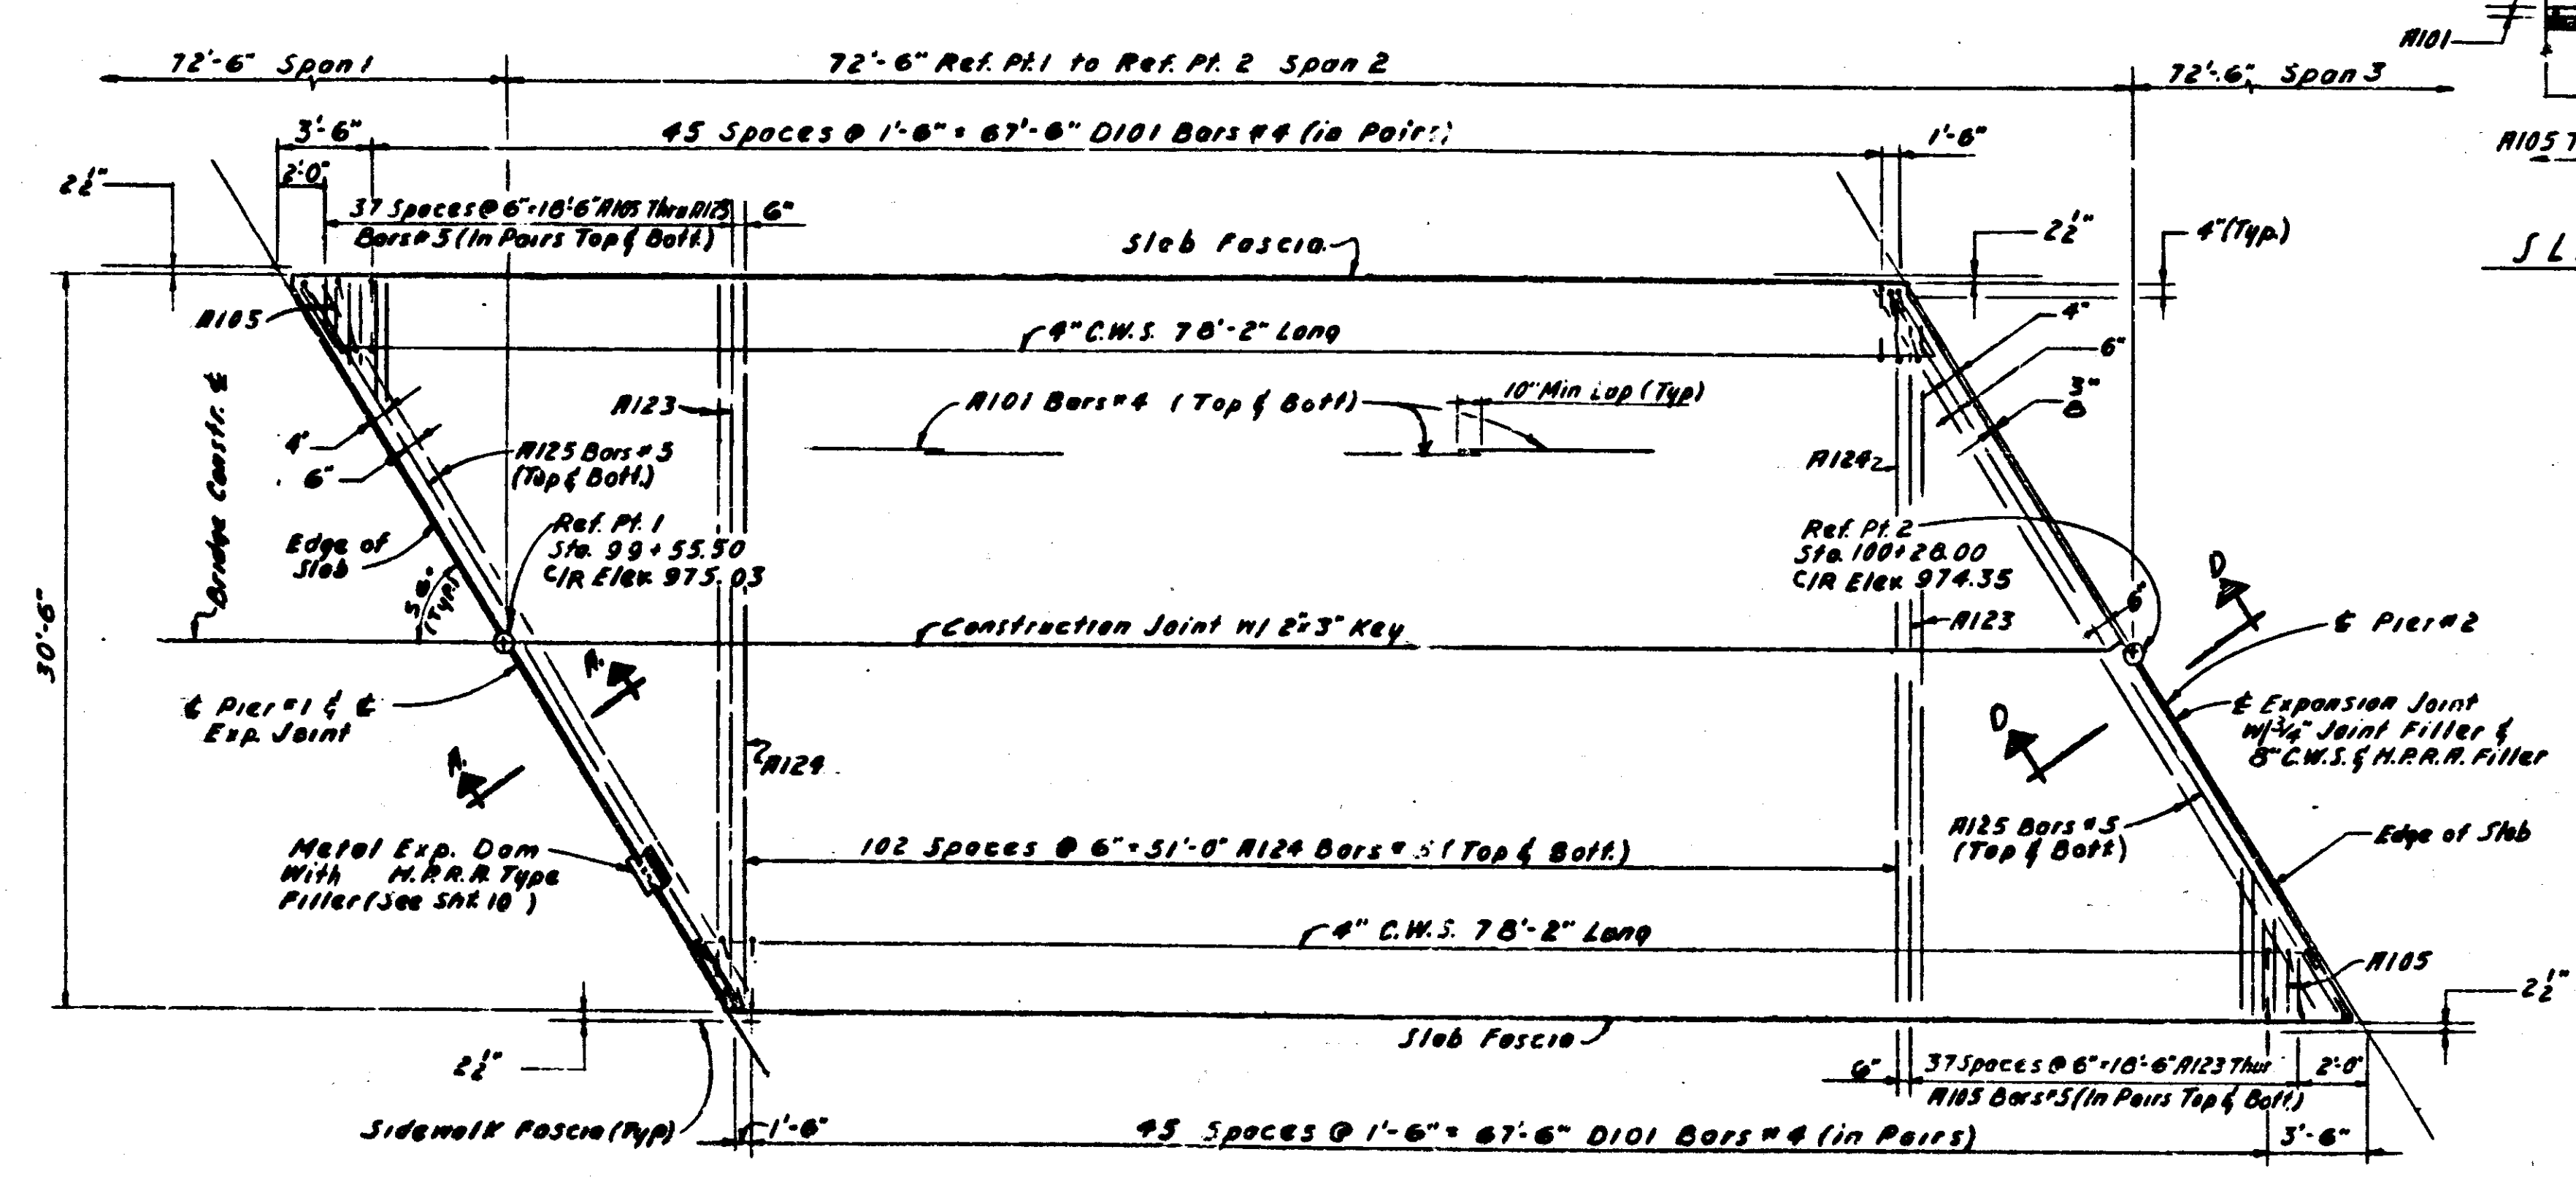 72'-6" Span 1
72'-6" Ref. Pt. 1 to Ref. Pt. 2 Span 2
72'-6" Span 3
A101
3'-6"
45 Spaces @ 1'-6" = 67'-6" D101 Bars #4 (in Pairs)
1'-6"
A105
2 1/2"
2'-0"
37 Spaces @ 6" = 18'-6" A105 Thru A123
Bars #5 (In Pairs Top & Bott.)
6"
Slab Fascia
2 1/2"
4" (Typ.)
S L
A105
4" C.W.S. 78'-2" Long
4"
6"
3/8"
Bridge Constr. ℄
A123
A101 Bars #4 (Top & Bott)
10" Min Lap (Typ)
4"
6"
A125 Bars #5
(Top & Bott.)
A124
Edge of
Slab
Ref. Pt. 1
Sta. 99+55.50
C/R Elev. 975.03
Ref. Pt. 2
Sta. 100+28.00
C/R Elev. 974.35
D
(Typ)
30'-6"
Construction Joint W/ 2"x3" Key
A123
6"
℄ Pier #2
A
℄ Pier #1 & ℄
Exp. Joint
A
A124
D
℄ Expansion Joint
W/ 3/4" Joint Filler &
8" C.W.S. & H.P.R.A. Filler
Metal Exp. Dam
With H.P.R.A. Type
Filler (See Sht. 10)
102 Spaces @ 6" = 51'-0" A124 Bars #5 (Top & Bott.)
A125 Bars #5
(Top & Bott)
Edge of Slab
4" C.W.S. 78'-2" Long
A105
2 1/2"
Slab Fascia
2 1/2"
6"
37 Spaces @ 6" = 18'-6" A123 Thur
A105 Bars #5 (In Pairs Top & Bott.)
2'-0"
Sidewalk Fascia (Typ)
1'-6"
45 Spaces @ 1'-6" = 67'-6" D101 Bars #4 (in Pairs)
3'-6"